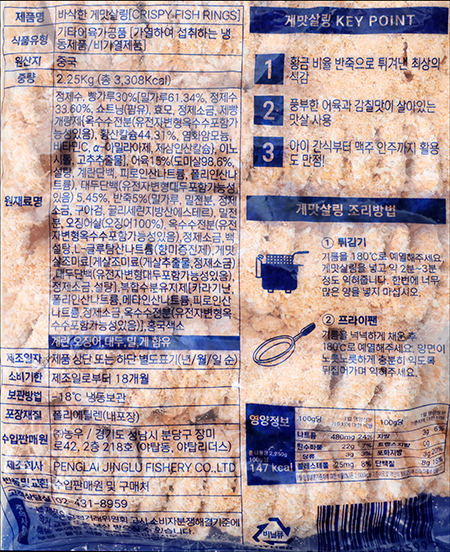 제품명 바삭한 게맛살링[CRISPY FISH RINGS]
식품유형 기타어육가공품 [가열하여 섭취하는 냉
동제품/비가열제품]
원산지 중국
중량 2.25Kg (총 3,308Kcal)
원재료명 정제수, 빵가루30%[밀가루61.34%, 정제수
33.60%, 쇼트닝(팜유), 효모, 정제소금, 제빵
개량제(옥수수전분(유전자변형옥수수포함가
능성있음), 황산칼슘44.31%, 염화암모늄,
비타민C, α-아밀라아제, 제삼인산칼슘), 이노
시톨, 고추추출물], 어육15%(도미살98.6%,
설탕, 계란단백, 피로인산나트륨, 폴리인산나
트륨), 대두단백(유전자변형대두포함가능성
있음) 5.45%, 반죽5%(밀가루, 밀전분, 정제
소금, 구아검, 글리세린지방산에스테르), 밀전
분, 오징어살(오징어100%), 옥수수전분(유전
자변형옥수수포함가능성있음), 정제소금, 백
설탕, L-글루탐산나트륨(향미증진제), 게맛
살조미료[게살조미료(게살추출물,정제소금)
대두단백(유전자변형대두포함가능성있음),
정제소금, 설탕], 복합수분유지제[카라기난,
폴리인산나트륨, 메타인산나트륨, 피로인산
나트륨,정제소금 옥수수전분(유전자변형옥
수수포함가능성있음)], 홍국색소
계란,오징어,대두,밀,게 함유
제조일자 제품 상단 또는 하단 별도표기(년/월/일 순)
소비기한 제조일로부터 18개월
보관방법 -18℃ 냉동보관
포장재질 폴리에틸렌(내포장)
수입판매원 ㈜농우 / 경기도 성남시 분당구 장미
로42, 2층 218호 (야탑동, 야탑리더스)
제조회사 PENGLAI JINGLU FISHERY CO.,LTD
반품 및 교환 수입판매원 및 구매처
고객상담실 02-431-8959
공정거래위원회 고시 소비자분쟁해결기준에
게맛살링 KEY POINT
1 황금 비율 반죽으로 튀겨낸 최상의
식감
2 풍부한 어육과 감칠맛이 살아있는
맛살 사용
3 아이 간식부터 맥주 안주까지 활용
도 만점!
게맛살링 조리방법
① 튀기기
기름을 180℃로 예열해주세요.
게맛살링을 넣고 약 2분~3분
정도 익혀줍니다. 한번에 너무
많은 양을 넣지 마십시오.
② 프라이팬
기름을 넉넉하게 채운 후
180℃로 예열해주세요. 양면이
노릇노릇하게 충분히 익도록
뒤집어가며 익혀주세요.
영양정보
147 kcal
100g당
나트륨 480mg 24%
탄수화물 22g 7%
당류 3g 3%
콜레스테롤 25mg 8%
100g당
지방 3g 6%
트랜스지방 0g
포화지방
단백질 8g 15%
비닐류